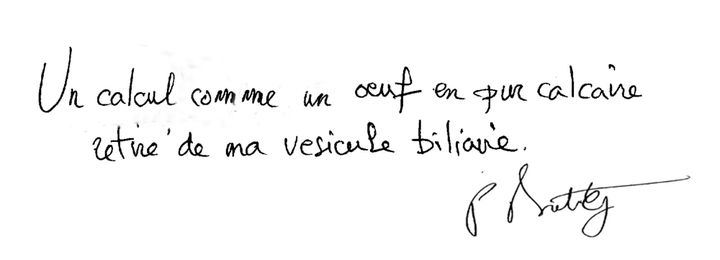 Un calcul comme un œuf en pur calcaire
retiré de ma vesicule biliarie.